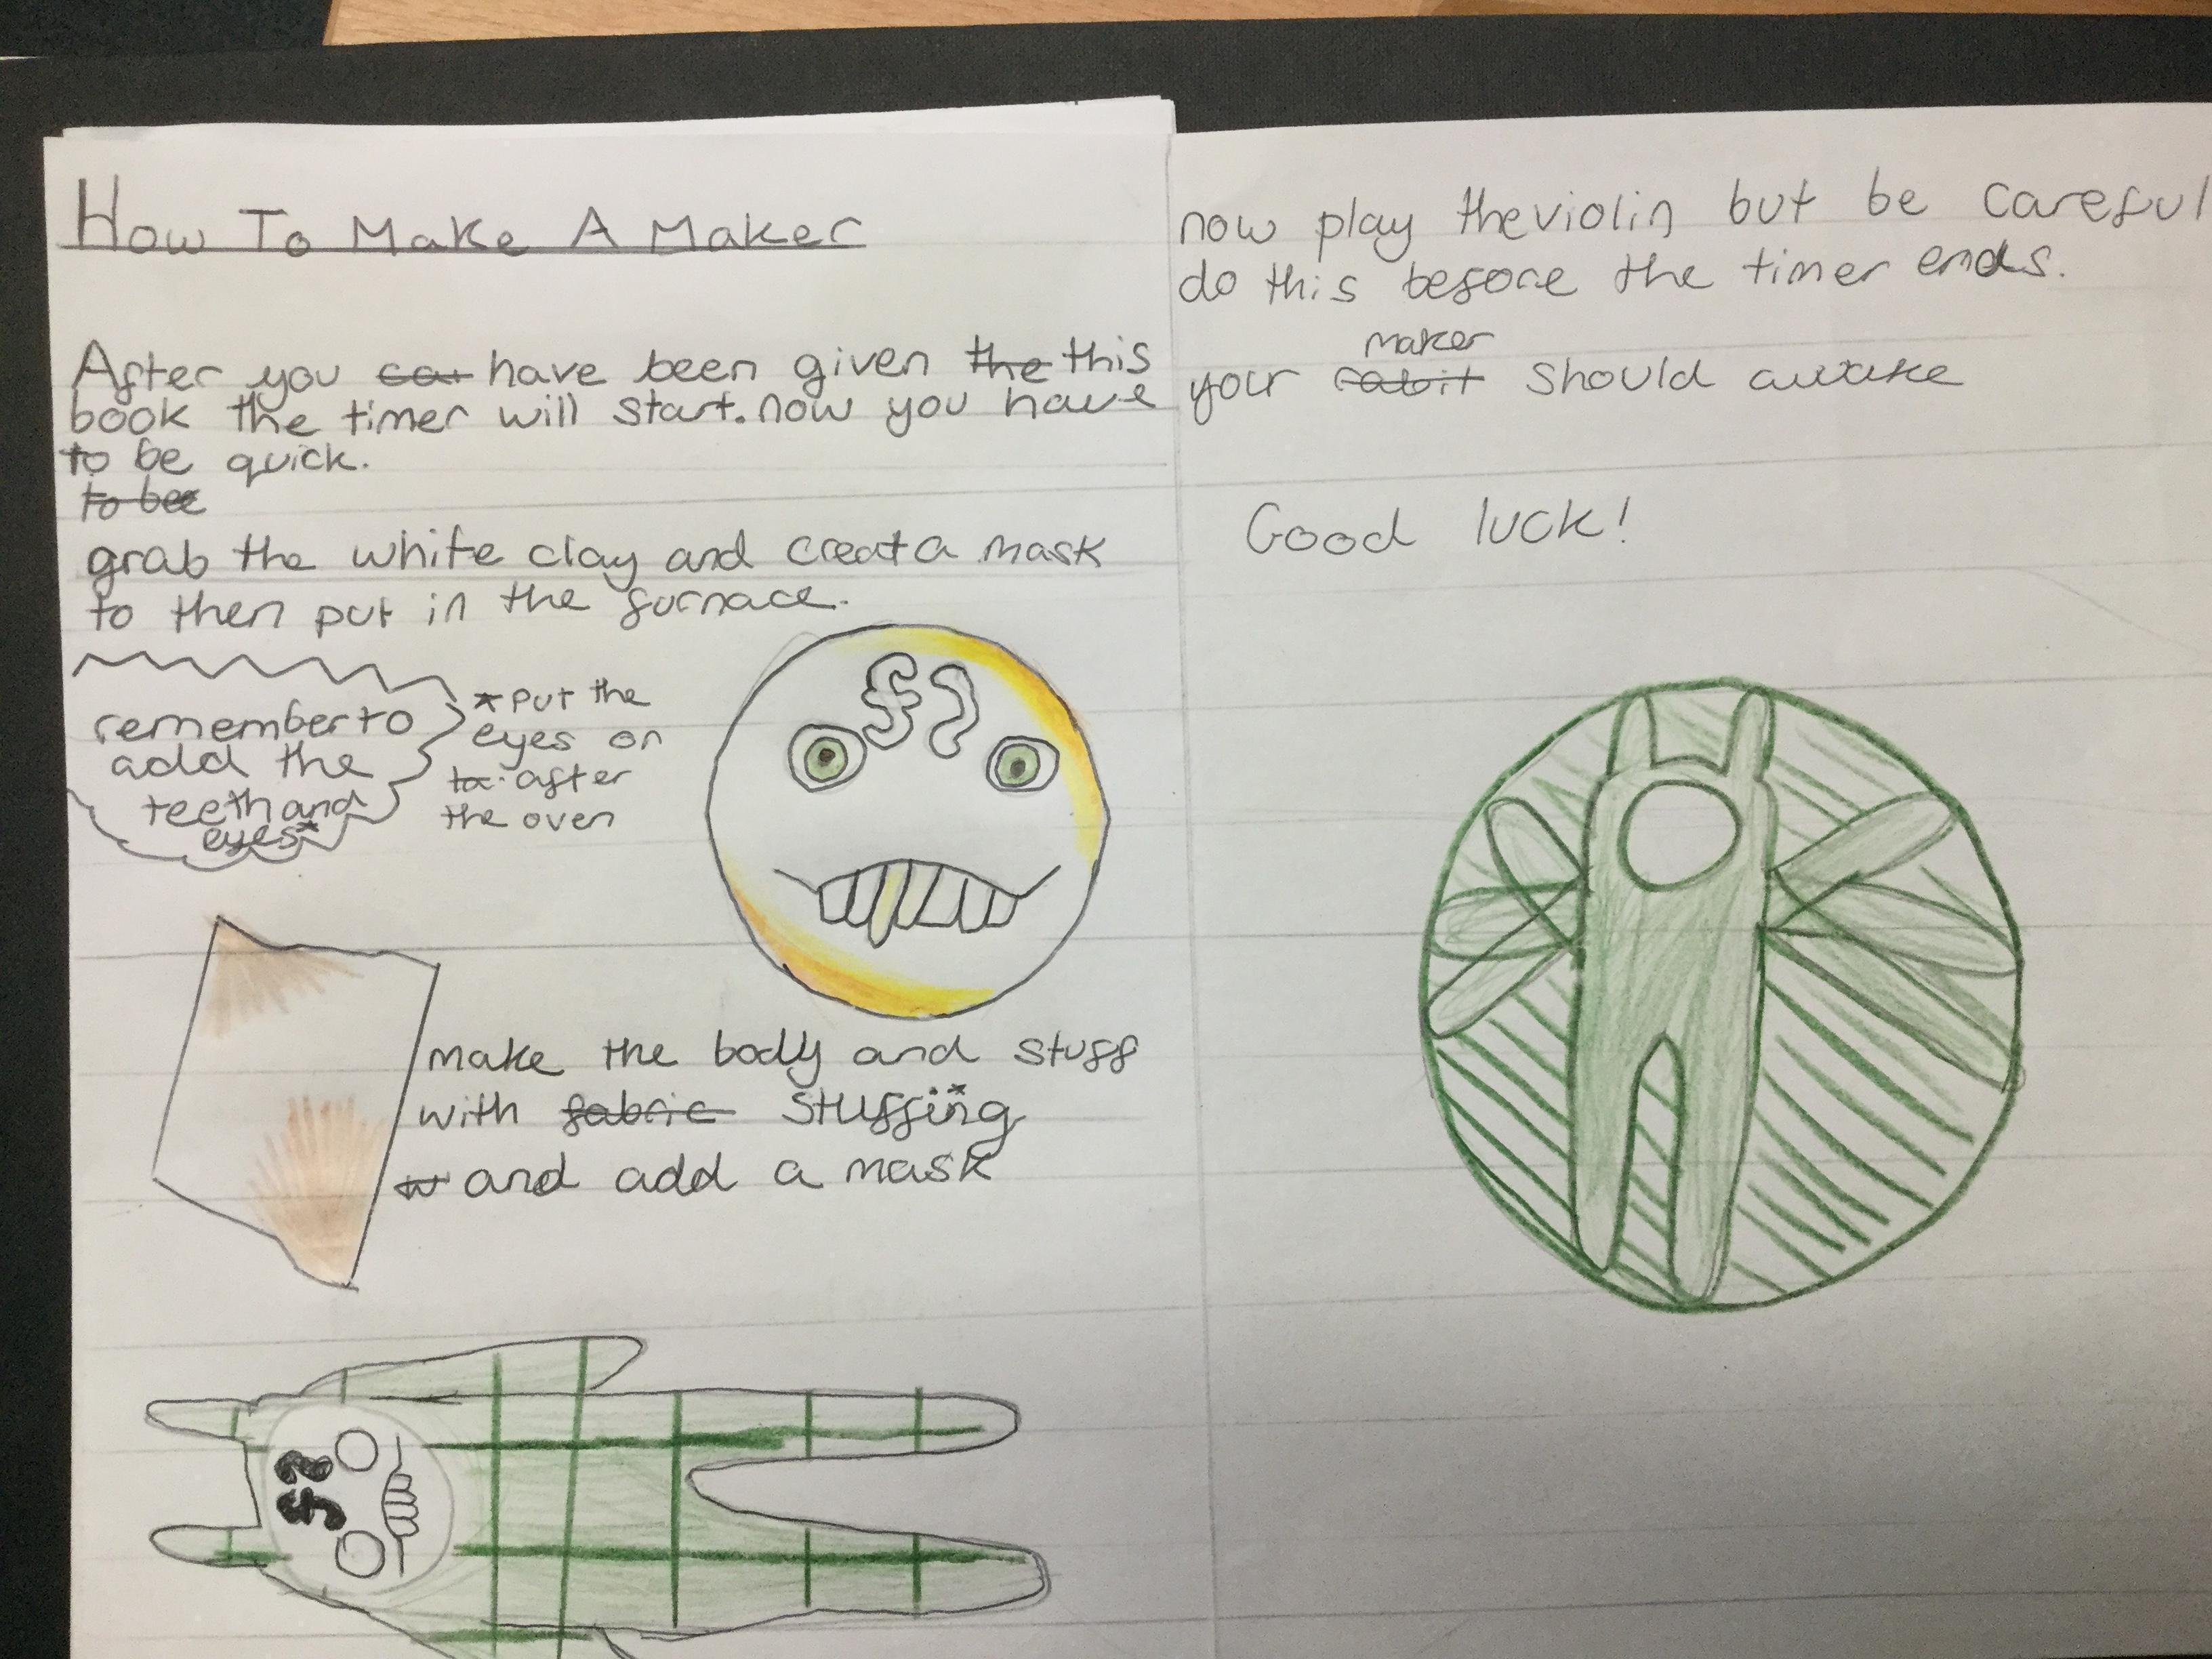 How To Make A Maker
After you ca have been given the this
book the timer will start. now you have
to be quick.
to bee
grab the white clay and creat a mask
to then put in the furnace.
remember to
add the
teeth and
eyes*
*put the
eyes on
to. after
the oven
make the body and stuff
with fabric stuffing*
w and add a mask
now play the violin but be careful
do this before the timer ends.
maker
your rabit should awake
Good luck!